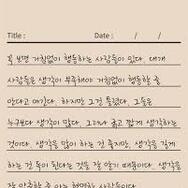 Title : Date : / /
꼭 보면 거침없이 행동하는 사람들이 있다. 대개
사람들은 생각이 부족해야 거침없이 행동할 줄
안다고 여긴다. 하지만 그건 틀렸다. 그들은
누구보다 생각이 많다. 그러나 옳고 짧게 생각하는
것이다. 생각이 많아야 하는 것은 좋지만, 생각을 길게
하는 건 독이 된다는 것을 잘 알기 때문이다. 생각을
잘 압축할 줄 아는 현명한 사람들이다.